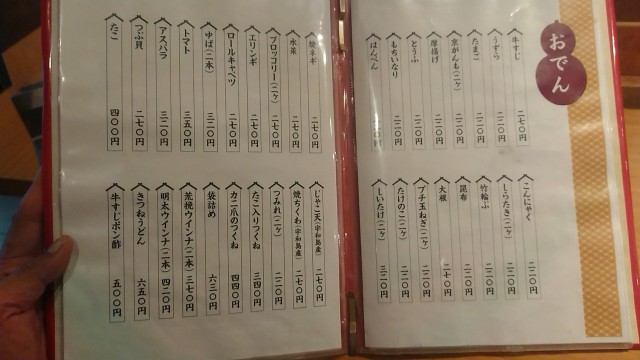 おでん
牛すじ 二七〇円
うずら 二二〇円
たまご 二二〇円
京がんも(二ヶ) 二二〇円
厚揚げ 二二〇円
とうふ 二二〇円
もちいなり 二二〇円
はんぺん
こんにゃく 二二〇円
しらたき(二ヶ) 二二〇円
竹輪ぶ 二二〇円
昆布 二二〇円
大根 二七〇円
プチ玉ねぎ(二ヶ) 二二〇円
たけのこ(二ヶ) 二二〇円
しいたけ(二ヶ) 三二〇円
焼ネギ 二七〇円
水菜 二七〇円
ブロッコリー(二ヶ) 二七〇円
エリンギ 二七〇円
ロールキャベツ 二七〇円
ゆば(二本) 三二〇円
トマト 三五〇円
アスパラ 三二〇円
つぶ貝 二七〇円
たこ 四〇〇円
じゃこ天(宇和島産) 二七〇円
焼ちくわ(宇和島産) 二七〇円
つみれ(二ヶ) 二二〇円
たこ入りつくね 三四〇円
カニ爪のつくね 四四〇円
袋詰め 六三〇円
荒挽ウインナ(二本) 三七〇円
明太ウインナ(二本) 四二〇円
きつねうどん 六五〇円
牛すじポン酢 五〇〇円